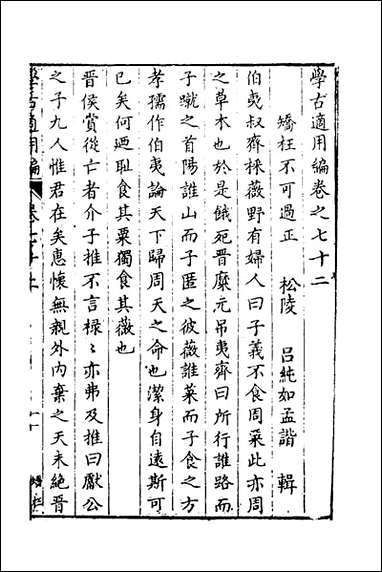 學古適用編卷之七十二
矯枉不可過正 松陵 呂純如孟諧 輯
伯夷叔齊採薇野有婦人曰子義不食周粟此亦周
之草木也於是餓死晉糜元吊夷齊曰所行誰路而
子蹴之首陽誰山而子匿之彼薇誰菜而子食之方
孝孺作伯夷論天下歸周天之命也潔身自遠斯可
已矣何迺耻食其粟獨食其薇也
晉侯賞從亡者介子推不言祿祿亦弗及推曰獻公
之子九人惟君在矣惠懷無親外內棄之天未絕晉
學古適用編